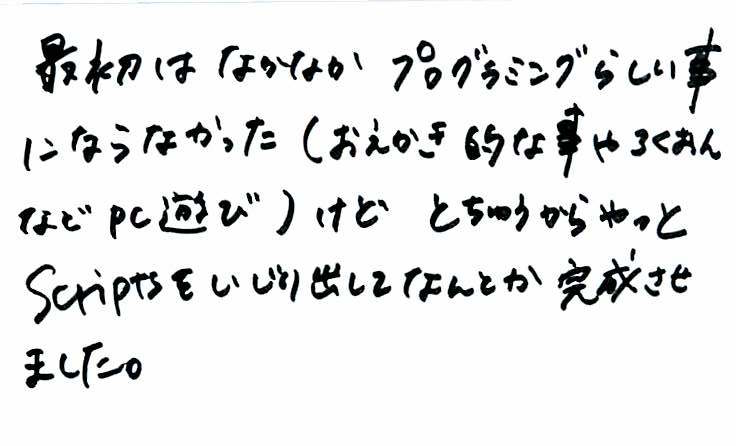 最初は なかなか プログラミングらしい事
にならなかった（おえかき的な事やろくおん
など PC遊び）けど とちゅうからやっと
Scriptsをいじり出してなんとか完成させ
ました。